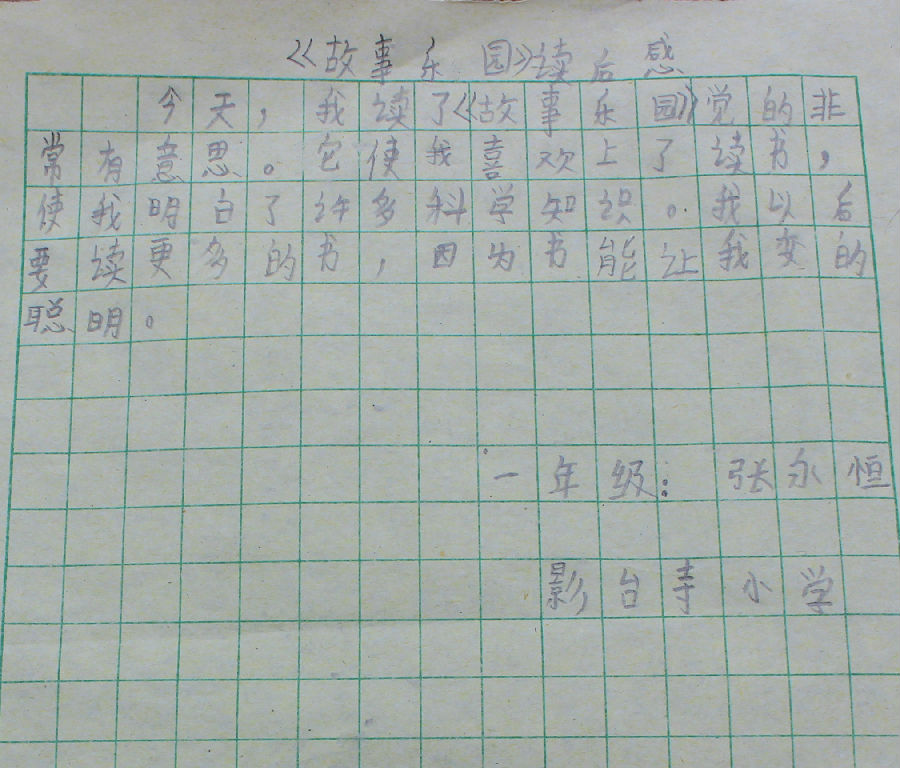 《故事乐园》读后感
今天，我读了《故事乐园》觉的非
常有意思。它使我喜欢上了读书，
使我明白了许多科学知识。我以后
要读更多的书，因为书能让我变的
聪明。
一年级：张永恒
影台寺小学